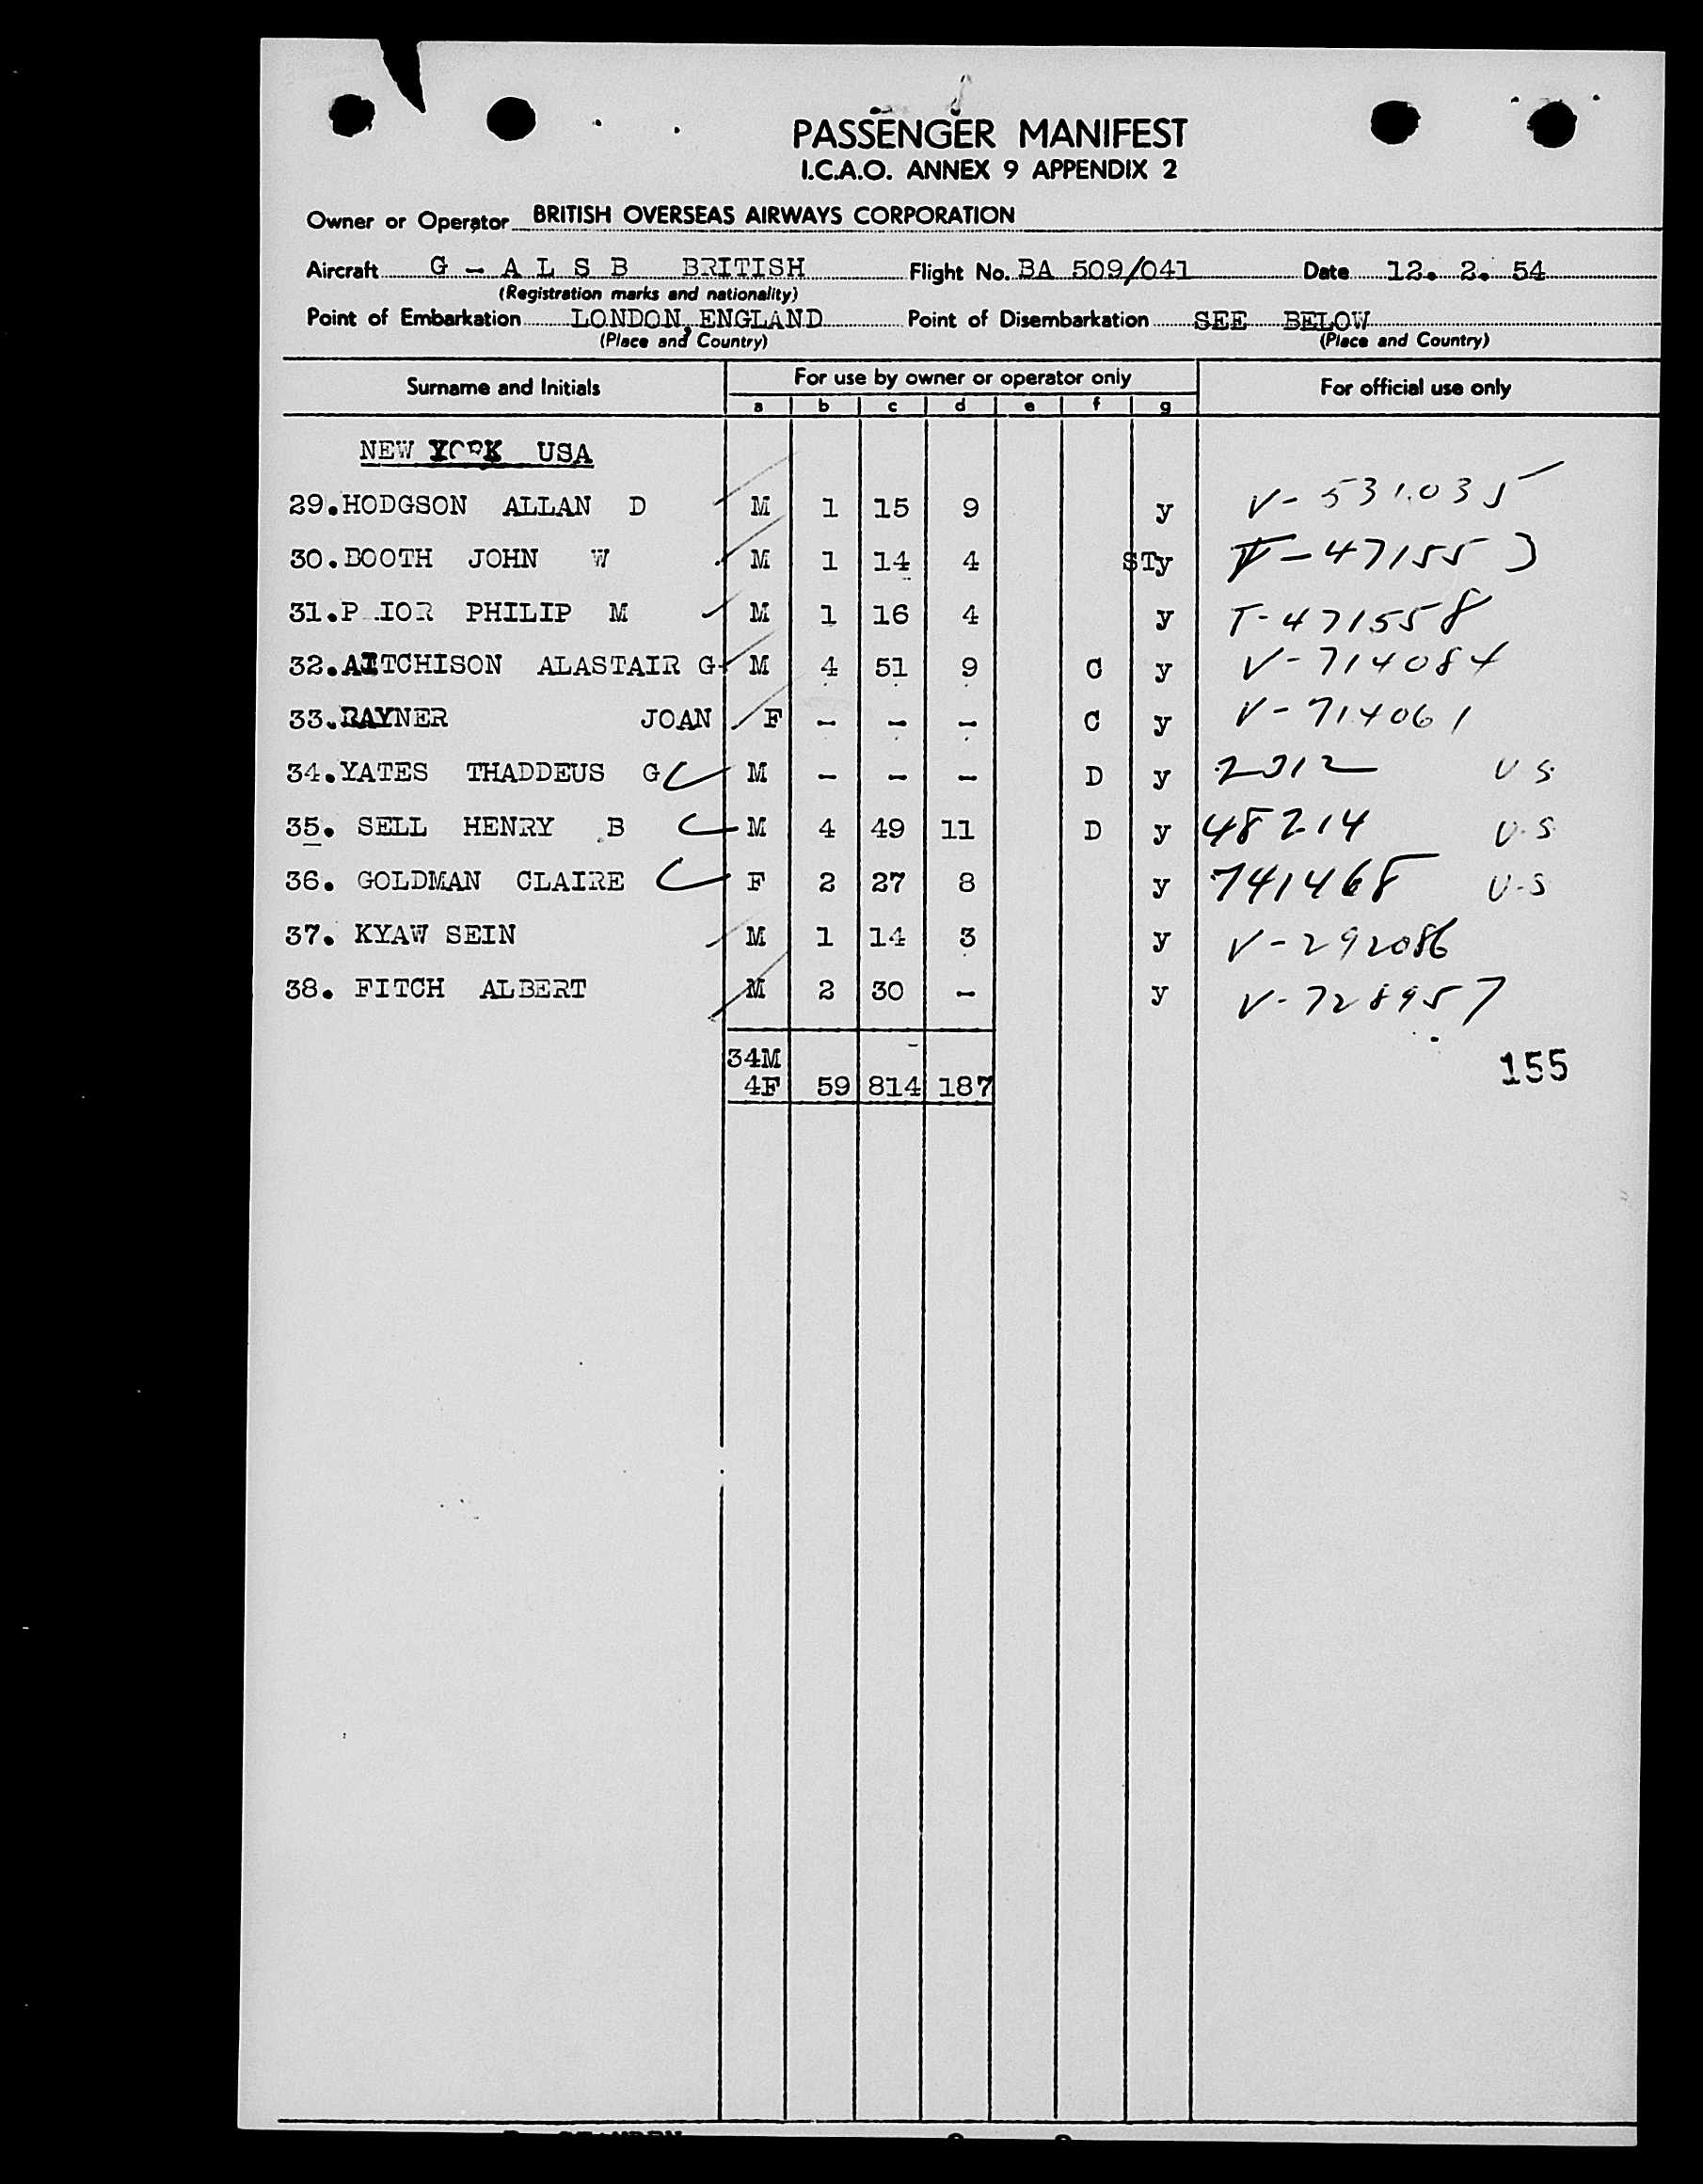 PASSENGER MANIFEST
I.C.A.O. ANNEX 9 APPENDIX 2
Owner or Operator BRITISH OVERSEAS AIRWAYS CORPORATION
Aircraft G - A L S B BRITISH Flight No. BA 509/041 Date 12. 2. 54
(Registration marks and nationality)
Point of Embarkation LONDON, ENGLAND Point of Disembarkation SEE BELOW
(Place and Country) (Place and Country)
Surname and Initials For use by owner or operator only For official use only
a b c d e f g
NEW YORK USA
29. HODGSON ALLAN D M 1 15 9 y V-531035
30. BOOTH JOHN W M 1 14 4 STy V-471553
31. P IOR PHILIP M M 1 16 4 y T-471558
32. AITCHISON ALASTAIR G M 4 51 9 C y V-714084
33. RAYNER JOAN F - - - C y V-714061
34. YATES THADDEUS G M - - - D y 2312 U S.
35. SELL HENRY B M 4 49 11 D y 48214 U.S.
36. GOLDMAN CLAIRE F 2 27 8 y 741468 U-S
37. KYAW SEIN M 1 14 3 y V-292086
38. FITCH ALBERT M 2 30 - y V-728957
34M
4F 59 814 187
155